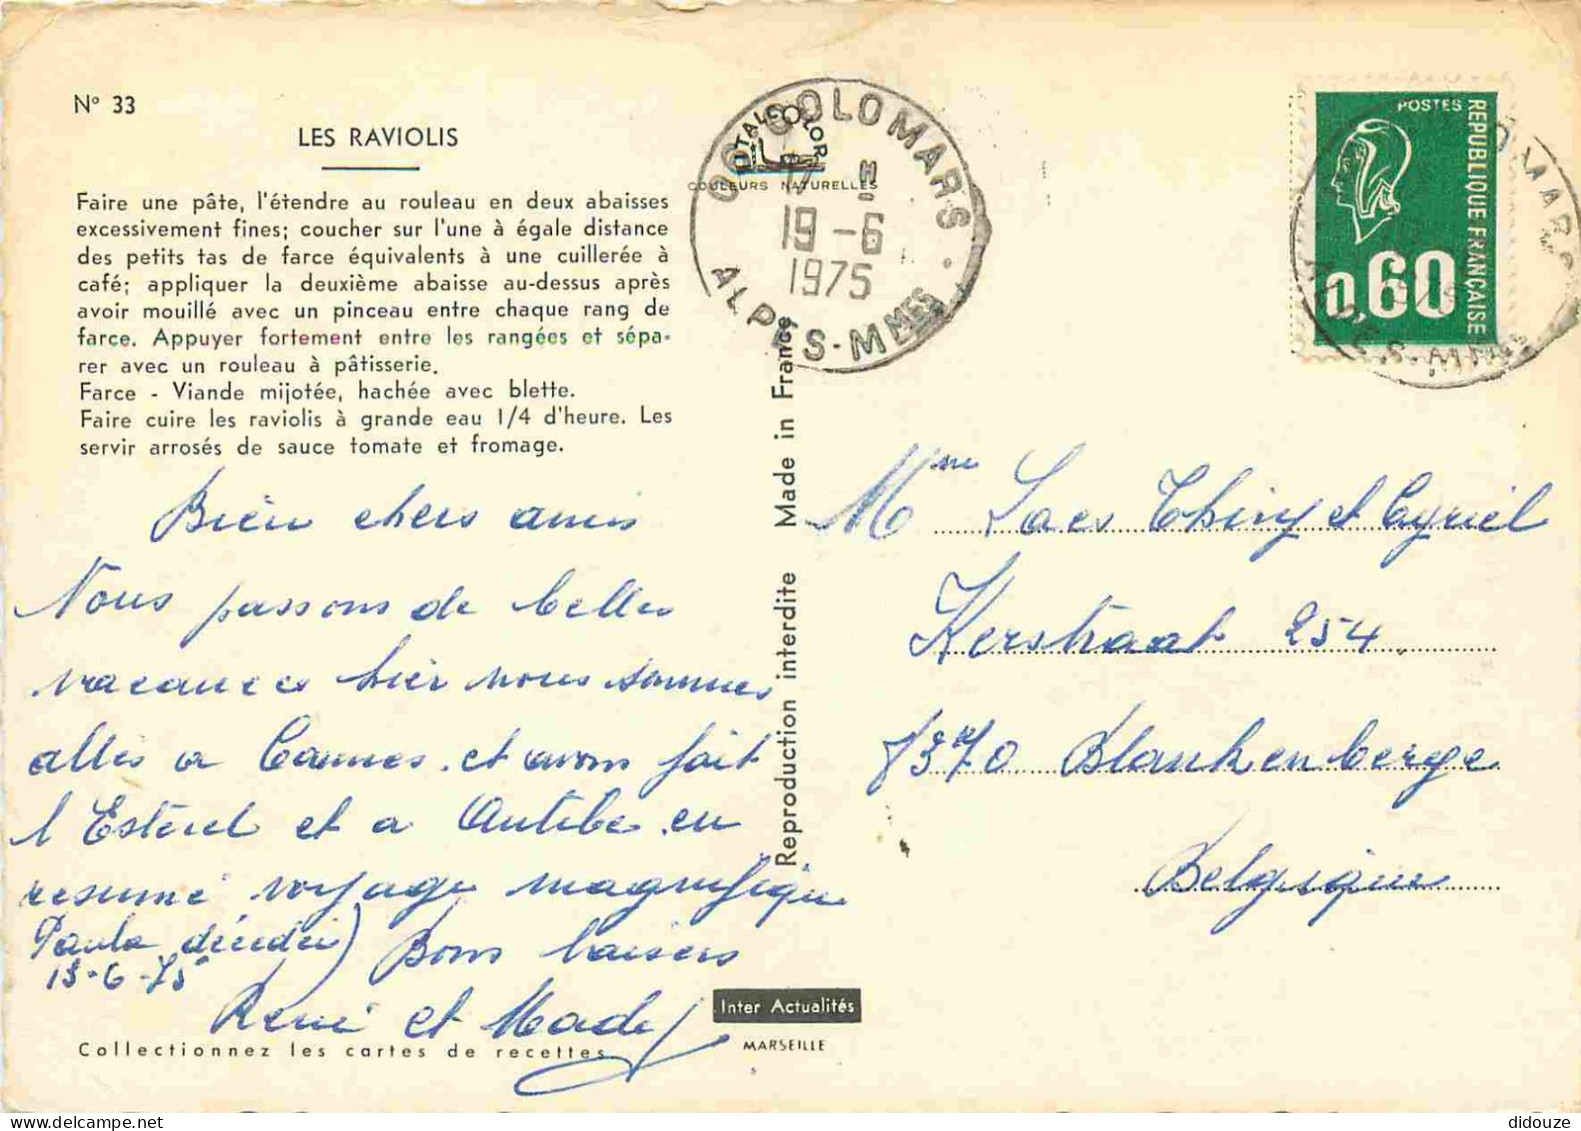 N° 33
LES RAVIOLIS
Faire une pâte, l'étendre au rouleau en deux abaisses
excessivement fines; coucher sur l'une à égale distance
des petits tas de farce équivalents à une cuillerée à
café; appliquer la deuxième abaisse au-dessus après
avoir mouillé avec un pinceau entre chaque rang de
farce. Appuyer fortement entre les rangées et sépa-
rer avec un rouleau à pâtisserie.
Farce - Viande mijotée, hachée avec blette.
Faire cuire les raviolis à grande eau 1/4 d'heure. Les
servir arrosés de sauce tomate et fromage.
Bien chers amis
Nous passons de belles
vacances hier nous sommes
allés a Cannes et avons fait
l Esterel et a Antibe en
resumé voyage magnifique
Paula décédée) Bons baisers
13-6-75
René et Mady
Collectionnez les cartes de recettes
Inter Actualités
MARSEILLE
Reproduction interdite Made in France
COULEURS NATURELLES
06 COLOMARS
17 H
19-6
1975
ALPES-MMES
POSTES
REPUBLIQUE FRANÇAISE
0,60
Mme Laes Thiry et Cyriel
Kerstraat 254
8370 Blankenberge
Belgique
didouze